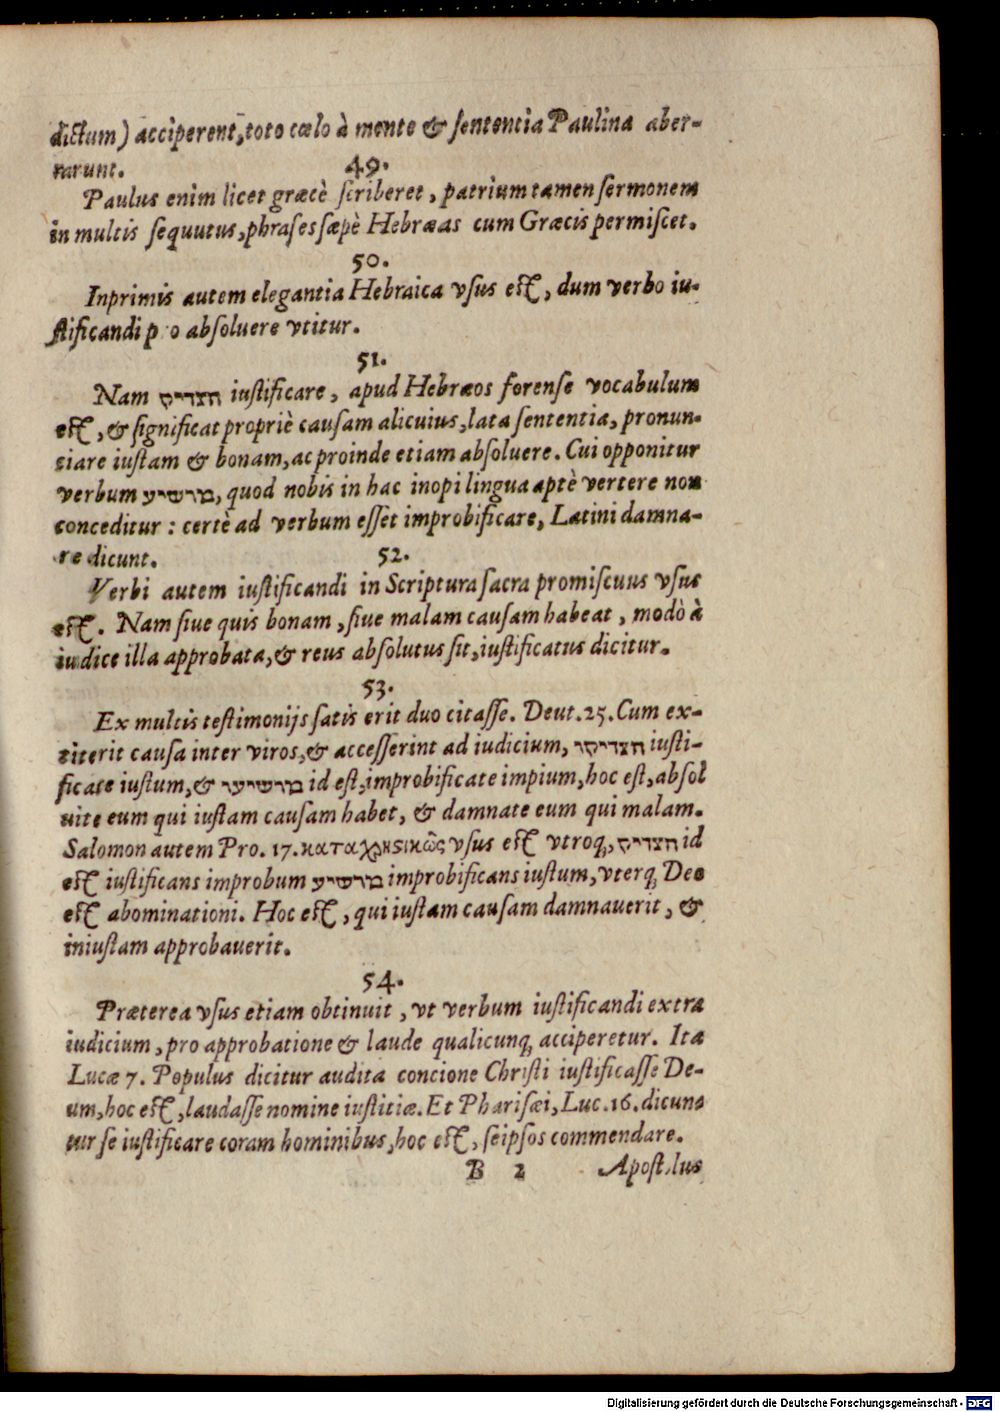 dictum) acciperent, toto cœlo à mente & ſententia Paulina aber-
rarunt.
49.
Paulus enim licet græcè ſcriberet, patrium tamen ſermonem
in multis ſequutus, phraſes ſæpè Hebræas cum Græcis permiſcet.
50.
Inprimis autem elegantia Hebraica vſus eſt, dum verbo iu-
ſtificandi p o abſoluere vtitur.
51.
Nam הצדיק iuſtificare, apud Hebræos forenſe vocabulum
eſt, & ſignificat propriè cauſam alicuius, lata ſententia, pronun-
ciare iuſtam & bonam, ac proinde etiam abſoluere. Cui opponitur
verbum מרשיע, quod nobis in hac inopi lingua aptè vertere non
conceditur: certè ad verbum eſſet improbificare, Latini damna-
re dicunt.
52.
Verbi autem iuſtificandi in Scriptura ſacra promiſcuus vſus
eſt. Nam ſiue quis bonam, ſiue malam cauſam habeat, modò à
iudice illa approbata, & reus abſolutus ſit, iuſtificatus dicitur.
53.
Ex multis teſtimonijs ſatis erit duo citaſſe. Deut. 25. Cum ex-
titerit cauſa inter viros, & acceſſerint ad iudicium, הצדיקו iuſti-
ficate iuſtum, & מרשיעו id eſt, improbificate impium, hoc eſt, abſol
uite eum qui iuſtam cauſam habet, & damnate eum qui malam.
Salomon autem Pro. 17. καταχρηςικῶς vſus eſt vtroq;, הצדיק id
eſt iuſtificans improbum מרשיע improbificans iuſtum, vterq; Deo
eſt abominationi. Hoc eſt, qui iuſtam cauſam damnauerit, &
iniuſtam approbauerit.
54.
Præterea vſus etiam obtinuit, vt verbum iuſtificandi extra
iudicium, pro approbatione & laude qualicunq; acciperetur. Ita
Lucæ 7. Populus dicitur audita concione Chriſti iuſtificaſſe De-
um, hoc eſt, laudaſſe nomine iuſtitiæ. Et Phariſæi, Luc. 16. dicun
tur ſe iuſtificare coram hominibus, hoc eſt, ſeipſos commendare.
B 2 Apoſt lus
Digitalisierung gefördert durch die Deutsche Forschungsgemeinschaft - DFG